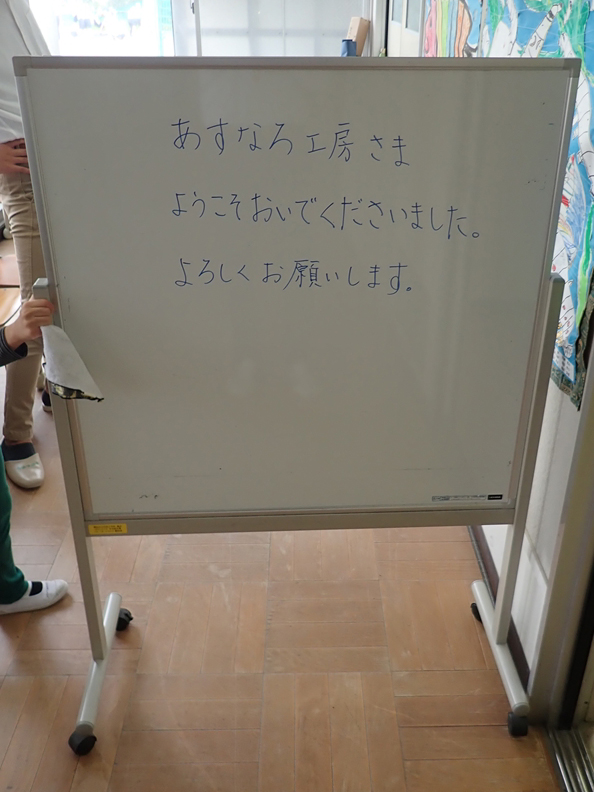 あすなろ工房さま
ようこそおいでくださいました。
よろしくお願いします。